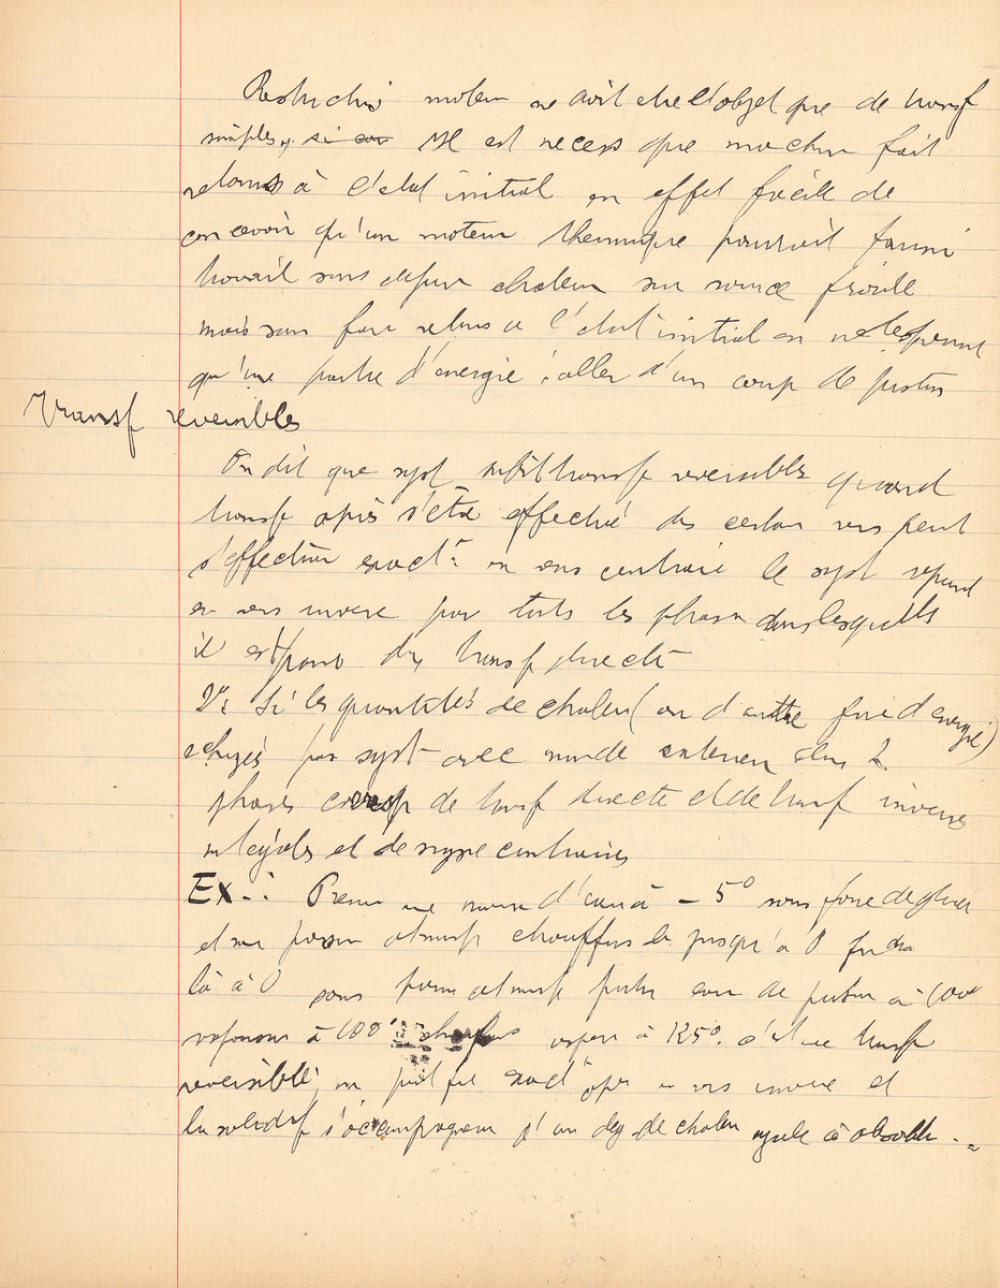 Restriction moteur ne doit etre l'objet que de transf
simples, si Il est necess que machine fait
retours à l'etat initial en effet facile de
concevoir qu'un moteur thermique pourrait fournir
travail sans depense chaleur sur source froide
mais sans faire retour a l'etat initial en ne
qu'une partie d'energie : aller d'un coup de piston
Transf reversibles
On dit que syst subit transf reversibles quand
transf après s'être effectué ds certain sens peut
s'effectuer exactt en sens contraire le syst
en sens inverse par touts les phases dans lesquells
il est ds transf directe
2° Si les quantités de chaleur (ou d'autre forme d'energie)
echangés par syst avec monde exterieur dans 2
phases corresp de transf directe et de transf inverse
st egales et de signe contraires
Ex.: Prenons une masse d'eau à - 5° sous forme de glace
et sous atmosph chauffons la jusqu'à 0
là à 0 sous atmosph de à 100°
à 100° à 125°. c'est une transf
reversible, on exactt en sens inverse et
la solidif s'accompagnera d'un deg de chaleur egale à